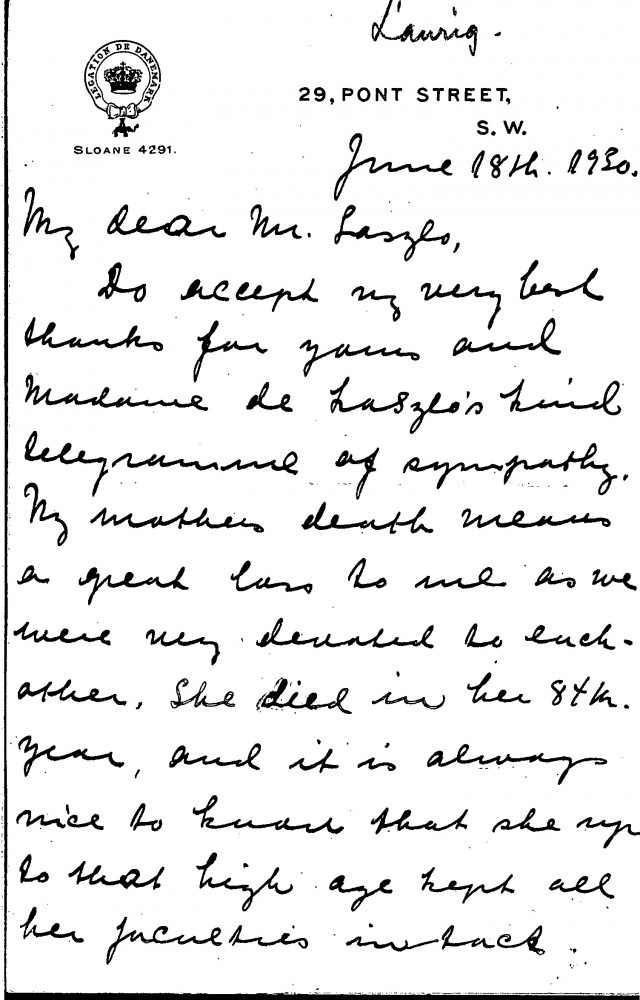 Laurig.
LEGATION DE DANEMARK
29, PONT STREET,
S. W.
SLOANE 4291.
June 18th. 1930.
My dear Mr. Laszlo,
Do accept my very best
thanks for yours and
Madame de Laszlo's kind
telegramme of sympathy.
My mothers death means
a great loss to me as we
were very devoted to each-
other. She died in her 84th.
year, and it is always
nice to know that she up
to that high age kept all
her faculties in tact.